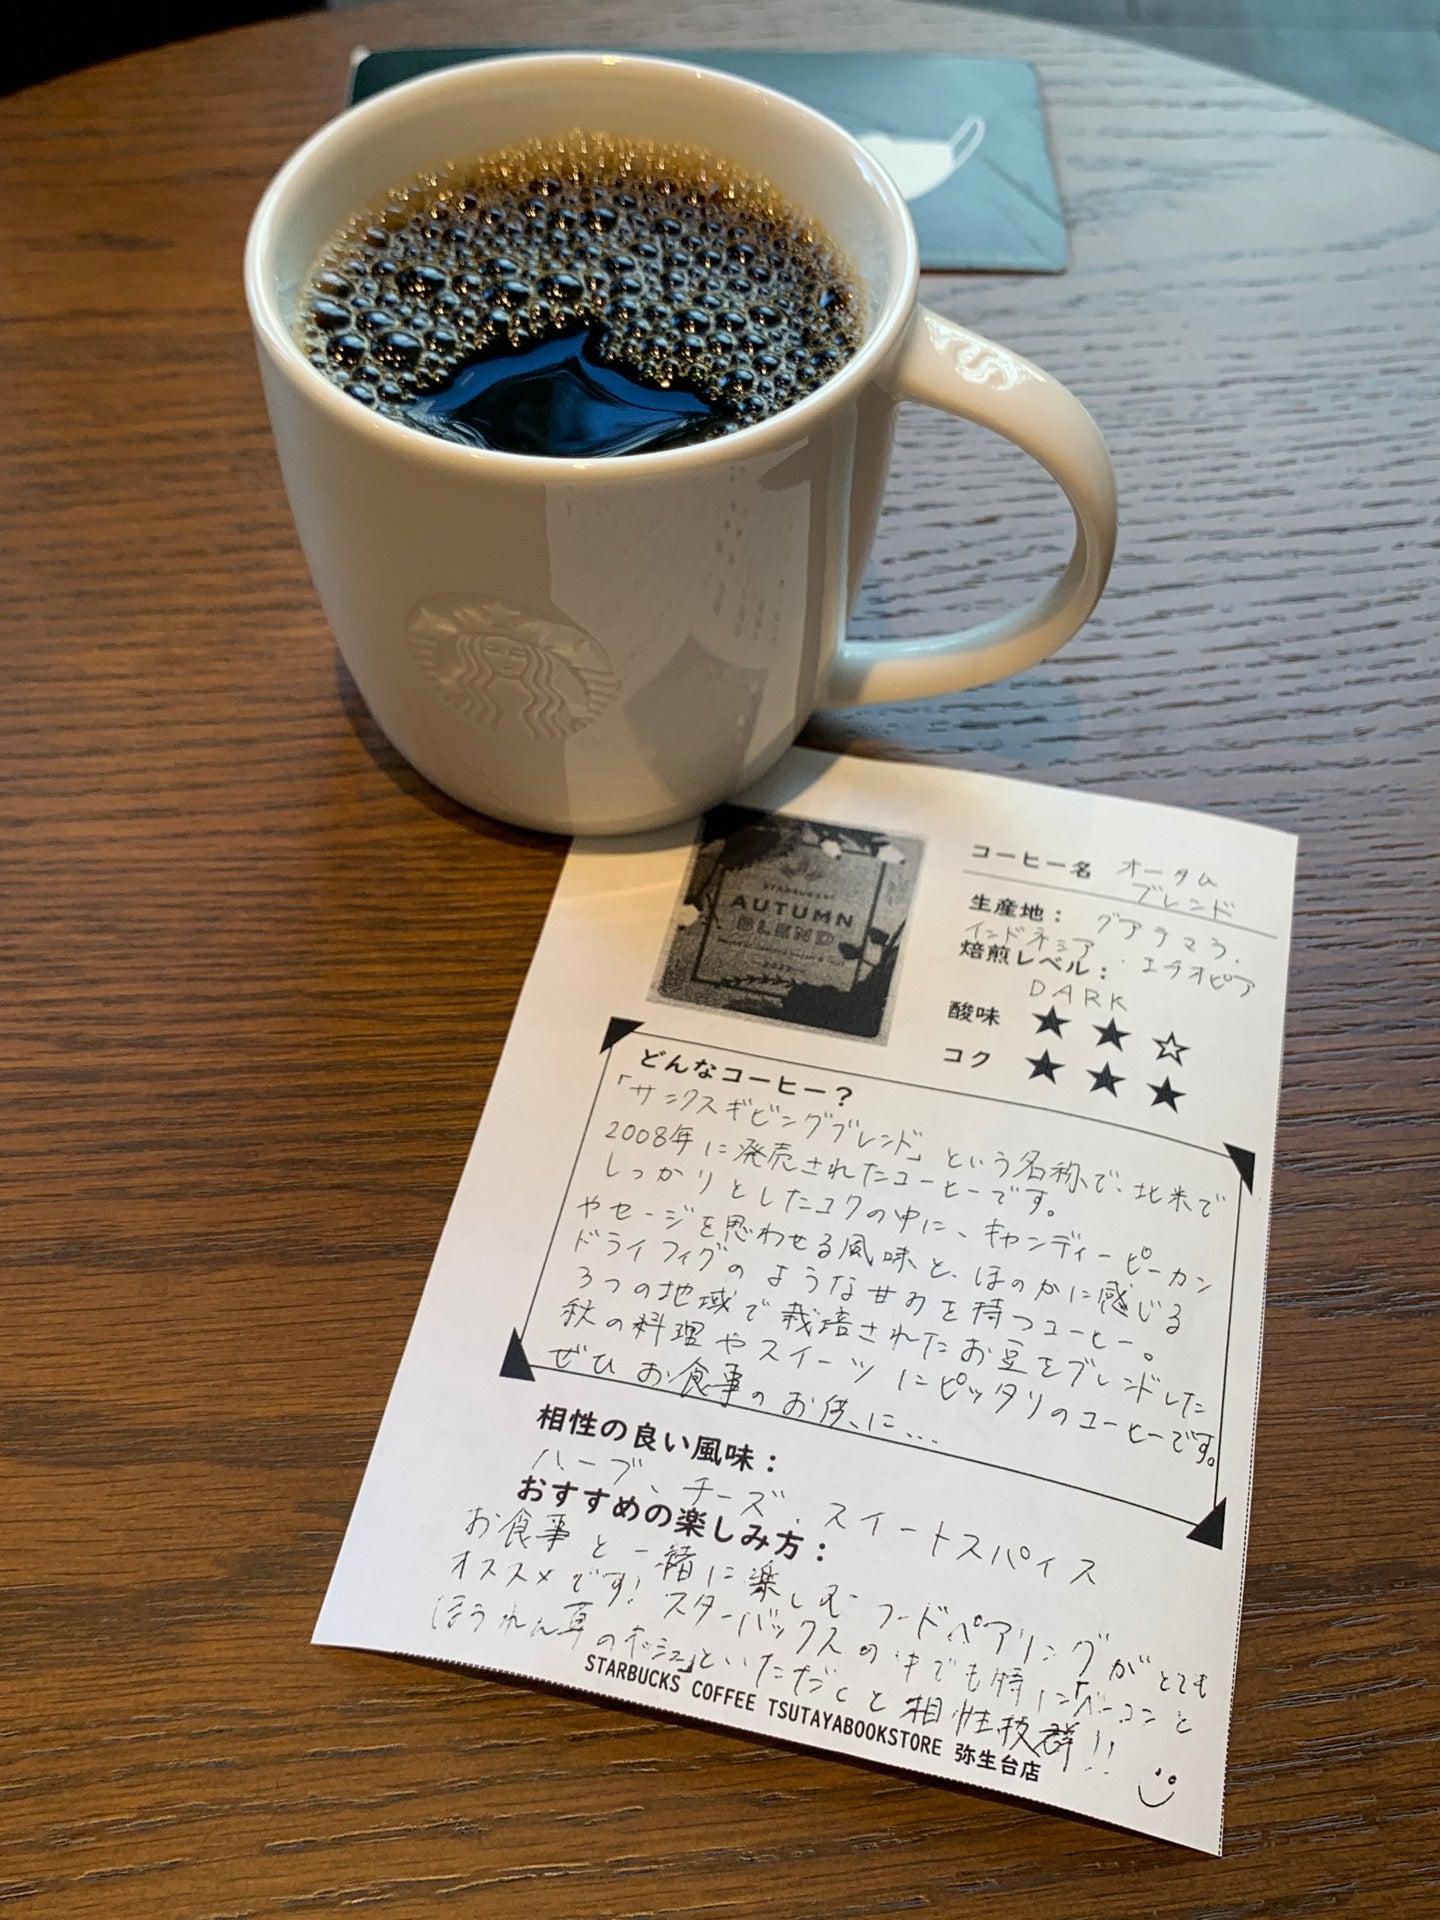 STARBUCKS
AUTUMN
BLEND
コーヒー名 オータム
ブレンド
生産地: グアテマラ、
インドネシア・エチオピア
焙煎レベル:
DARK
酸味 ★★☆
コク ★★★
どんなコーヒー?
「サンクスギビングブレンド」という名称で、北米で
2008年に発売されたコーヒーです。
しっかりとしたコクの中に、キャンディーピーカン
やセージを思わせる風味と、ほのかに感じる
ドライフィグのような甘みを持つコーヒー。
3つの地域で栽培されたお豆をブレンドした
秋の料理やスイーツにピッタリのコーヒーです。
ぜひお食事のお供に...
相性の良い風味:
ハーブ、チーズ、スイートスパイス
おすすめの楽しみ方:
お食事と一緒に楽しむフードペアリングがとても
オススメです! スターバックスの中でも特に「ベーコンと
ほうれん草のキッシュ」といただくと相性抜群!!
STARBUCKS COFFEE TSUTAYABOOKSTORE 弥生台店